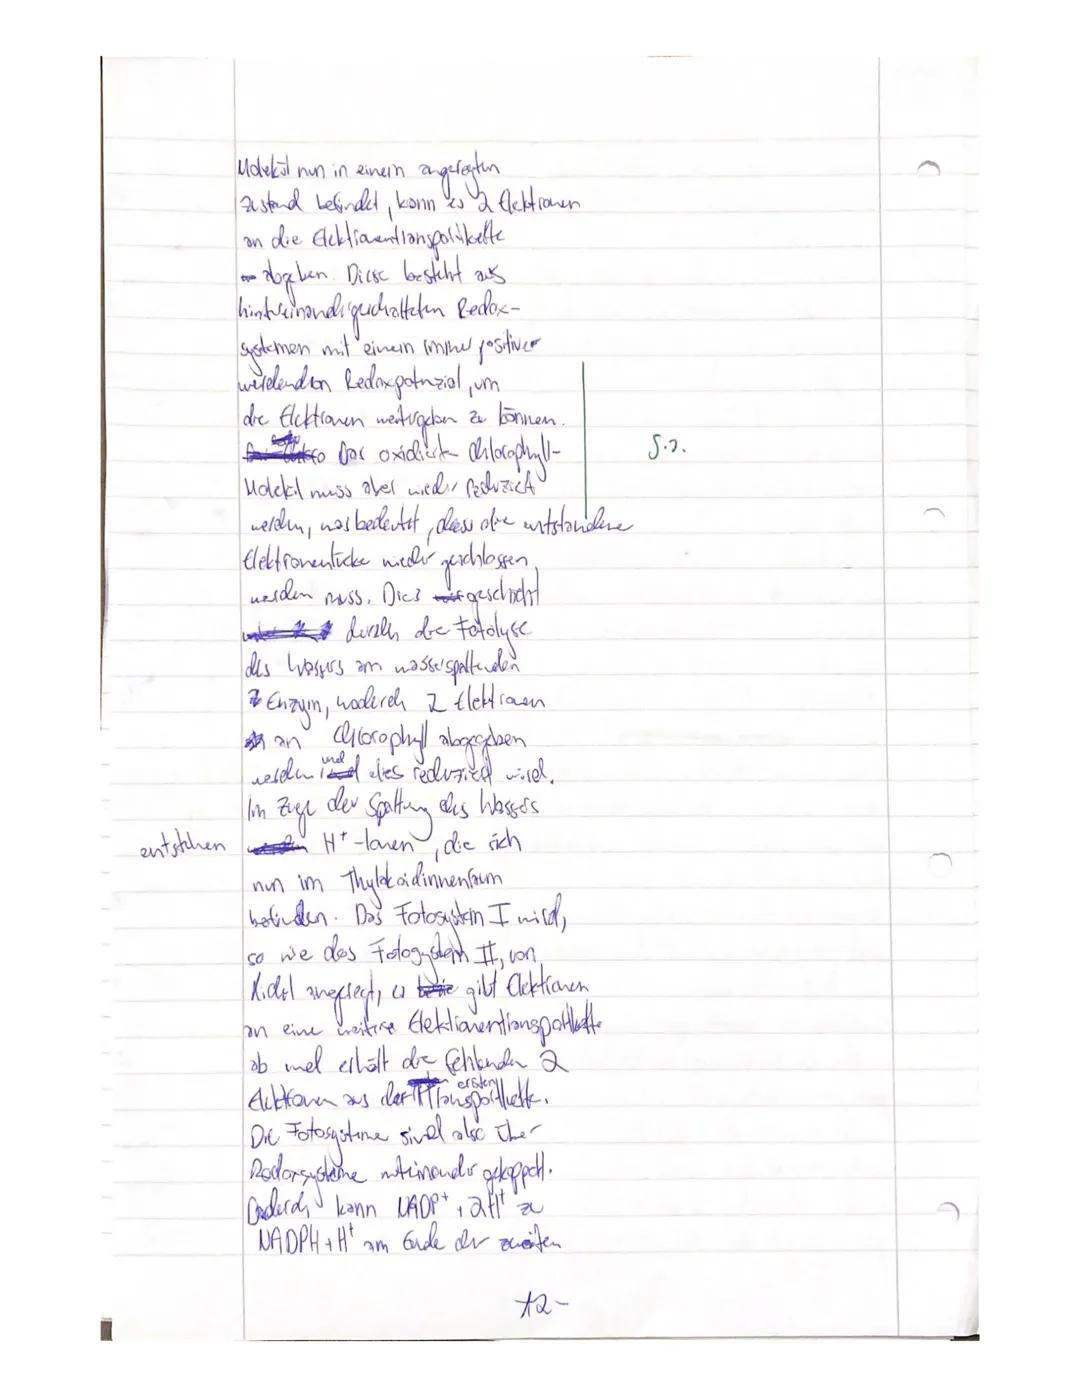 Molekül nun in einem angeregten
Zustand befindet, kann es 2 Elektronen
an die Elektronentransportkette
abgeben. Diese besteht aus
hintereinandergeschalteten Redox-
systemen mit einem immer positiver
werdenden Redoxpotenzial, um
die Elektronen weitergeben zu können.
Das oxidierte Chlorophyll-
s.o.
Molekül muss aber wieder reduziert
werden, was bedeutet, dass die entstandene
Elektronenlücke wieder geschlossen
werden muss. Dies geschieht
durch die Fotolyse
des Wassers am wasserspaltenden
Enzym, wodurch 2 Elektronen
an Chlorophyll abgegeben
werden und dies reduziert wird.
Im Zuge der Spaltung des Wassers
entstehen H⁺-Ionen, die sich
nun im Thylakoidinnenraum
befinden. Das Fotosystem I wird,
so wie das Fotosystem II, von
Licht angeregt, es gibt Elektronen
an eine weitere Elektronentransportkette
ab und erhält die fehlenden 2
Elektronen aus der ersten Transportkette.
Die Fotosysteme sind also über
Redoxsysteme miteinander gekoppelt.
Dadurch kann NADP⁺ + 2H⁺ zu
NADPH+H⁺ am Ende der zweiten